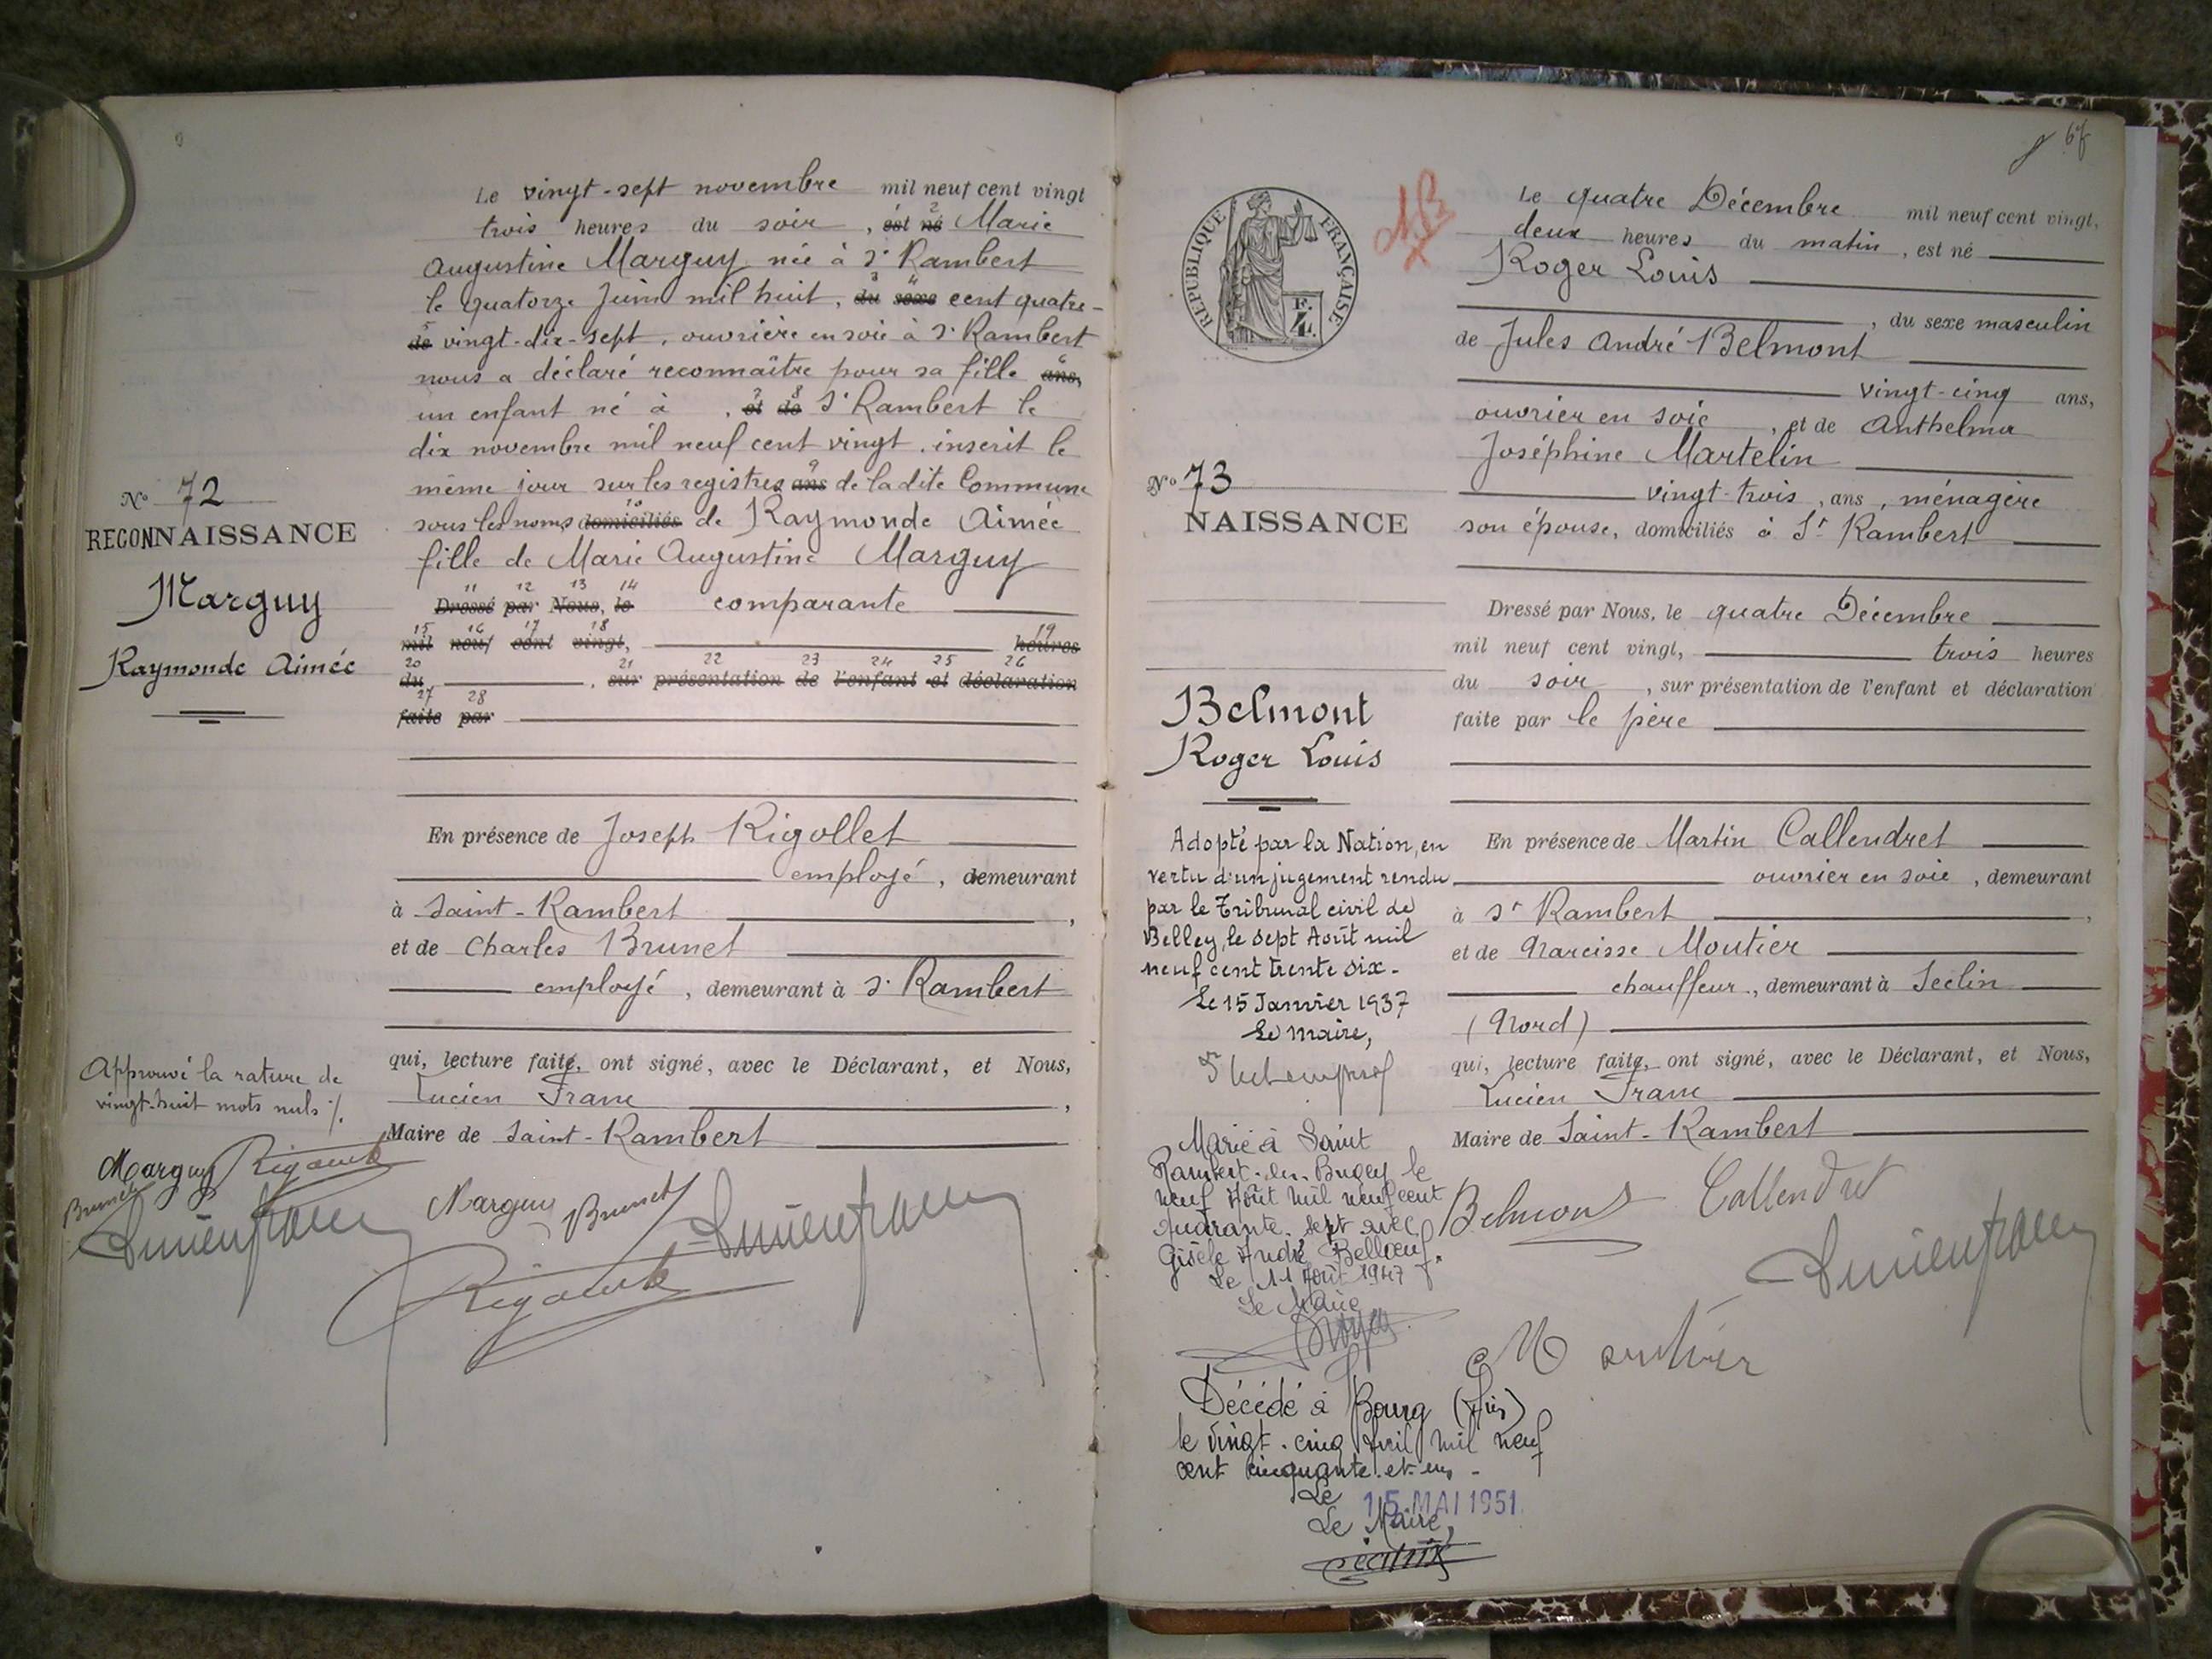 Le vingt-sept novembre mil neuf cent vingt
trois heures du soir, est né Marie
Augustine Marguy née à St Rambert
le quatorze Juin mil huit, du sexe cent quatre-
de vingt-dix-sept, ouvrière en soie à St Rambert
nous a déclaré reconnaître pour sa fille ans,
un enfant né à , et de St Rambert le
dix novembre mil neuf cent vingt. inscrit le
même jour sur les registres ans de la dite Commune
sous les noms domiciliés de Raymonde Aimée
fille de Marie Augustine Marguy
11 12 13 14
Dressé par Nous, le comparante
15 16 17 18 19
mil neuf cent vingt, heures
20 21 22 23 24 25 26
du , sur présentation de l'enfant et déclaration
27 28
faite par
No 72
RECONNAISSANCE
Marguy
Raymonde Aimée
En présence de Joseph Rigollet
employé, demeurant
à Saint-Rambert ,
et de Charles Brunet
employé, demeurant à St Rambert
qui, lecture faite, ont signé, avec le Déclarant, et Nous,
Lucien Franc ,
Maire de Saint-Rambert
Approuvé la rature de
vingt-huit mots nuls ./.
Marguy
Brunet
Marguy Brunet
67
RÉPUBLIQUE FRANÇAISE
Le quatre Décembre mil neuf cent vingt,
deux heures du matin, est né
Roger Louis
, du sexe masculin
de Jules André Belmont
vingt-cinq ans,
ouvrier en soie, et de Anthelma
Joséphine Martelin
vingt-trois, ans, ménagère
son épouse, domiciliés à St Rambert
Dressé par Nous, le quatre Décembre
mil neuf cent vingt, trois heures
du soir, sur présentation de l'enfant et déclaration
faite par le père
No 73
NAISSANCE
Belmont
Roger Louis
En présence de Martin Callendret
ouvrier en soie, demeurant
à St Rambert ,
et de Narcisse Moutier
chauffeur, demeurant à Seclin
(Nord)
qui, lecture faite, ont signé, avec le Déclarant, et Nous,
Lucien Franc
Maire de Saint-Rambert
Adopté par la Nation, en
vertu d'un jugement rendu
par le Tribunal civil de
Belley, le sept Août mil
neuf cent trente six.
Le 15 Janvier 1937
Le maire,
Marié à Saint
Rambert-en-Bugey le
neuf Août mil neuf cent
quarante-sept avec
Gisèle André Bellœuf.
Le 11 Août 1947
Le Maire
Décédé à Bourg (Ain)
le vingt-cinq Avril mil neuf
cent cinquante-et-un -
Le 15 MAI 1951
Le Maire,
Belmont Callendret
Moutier